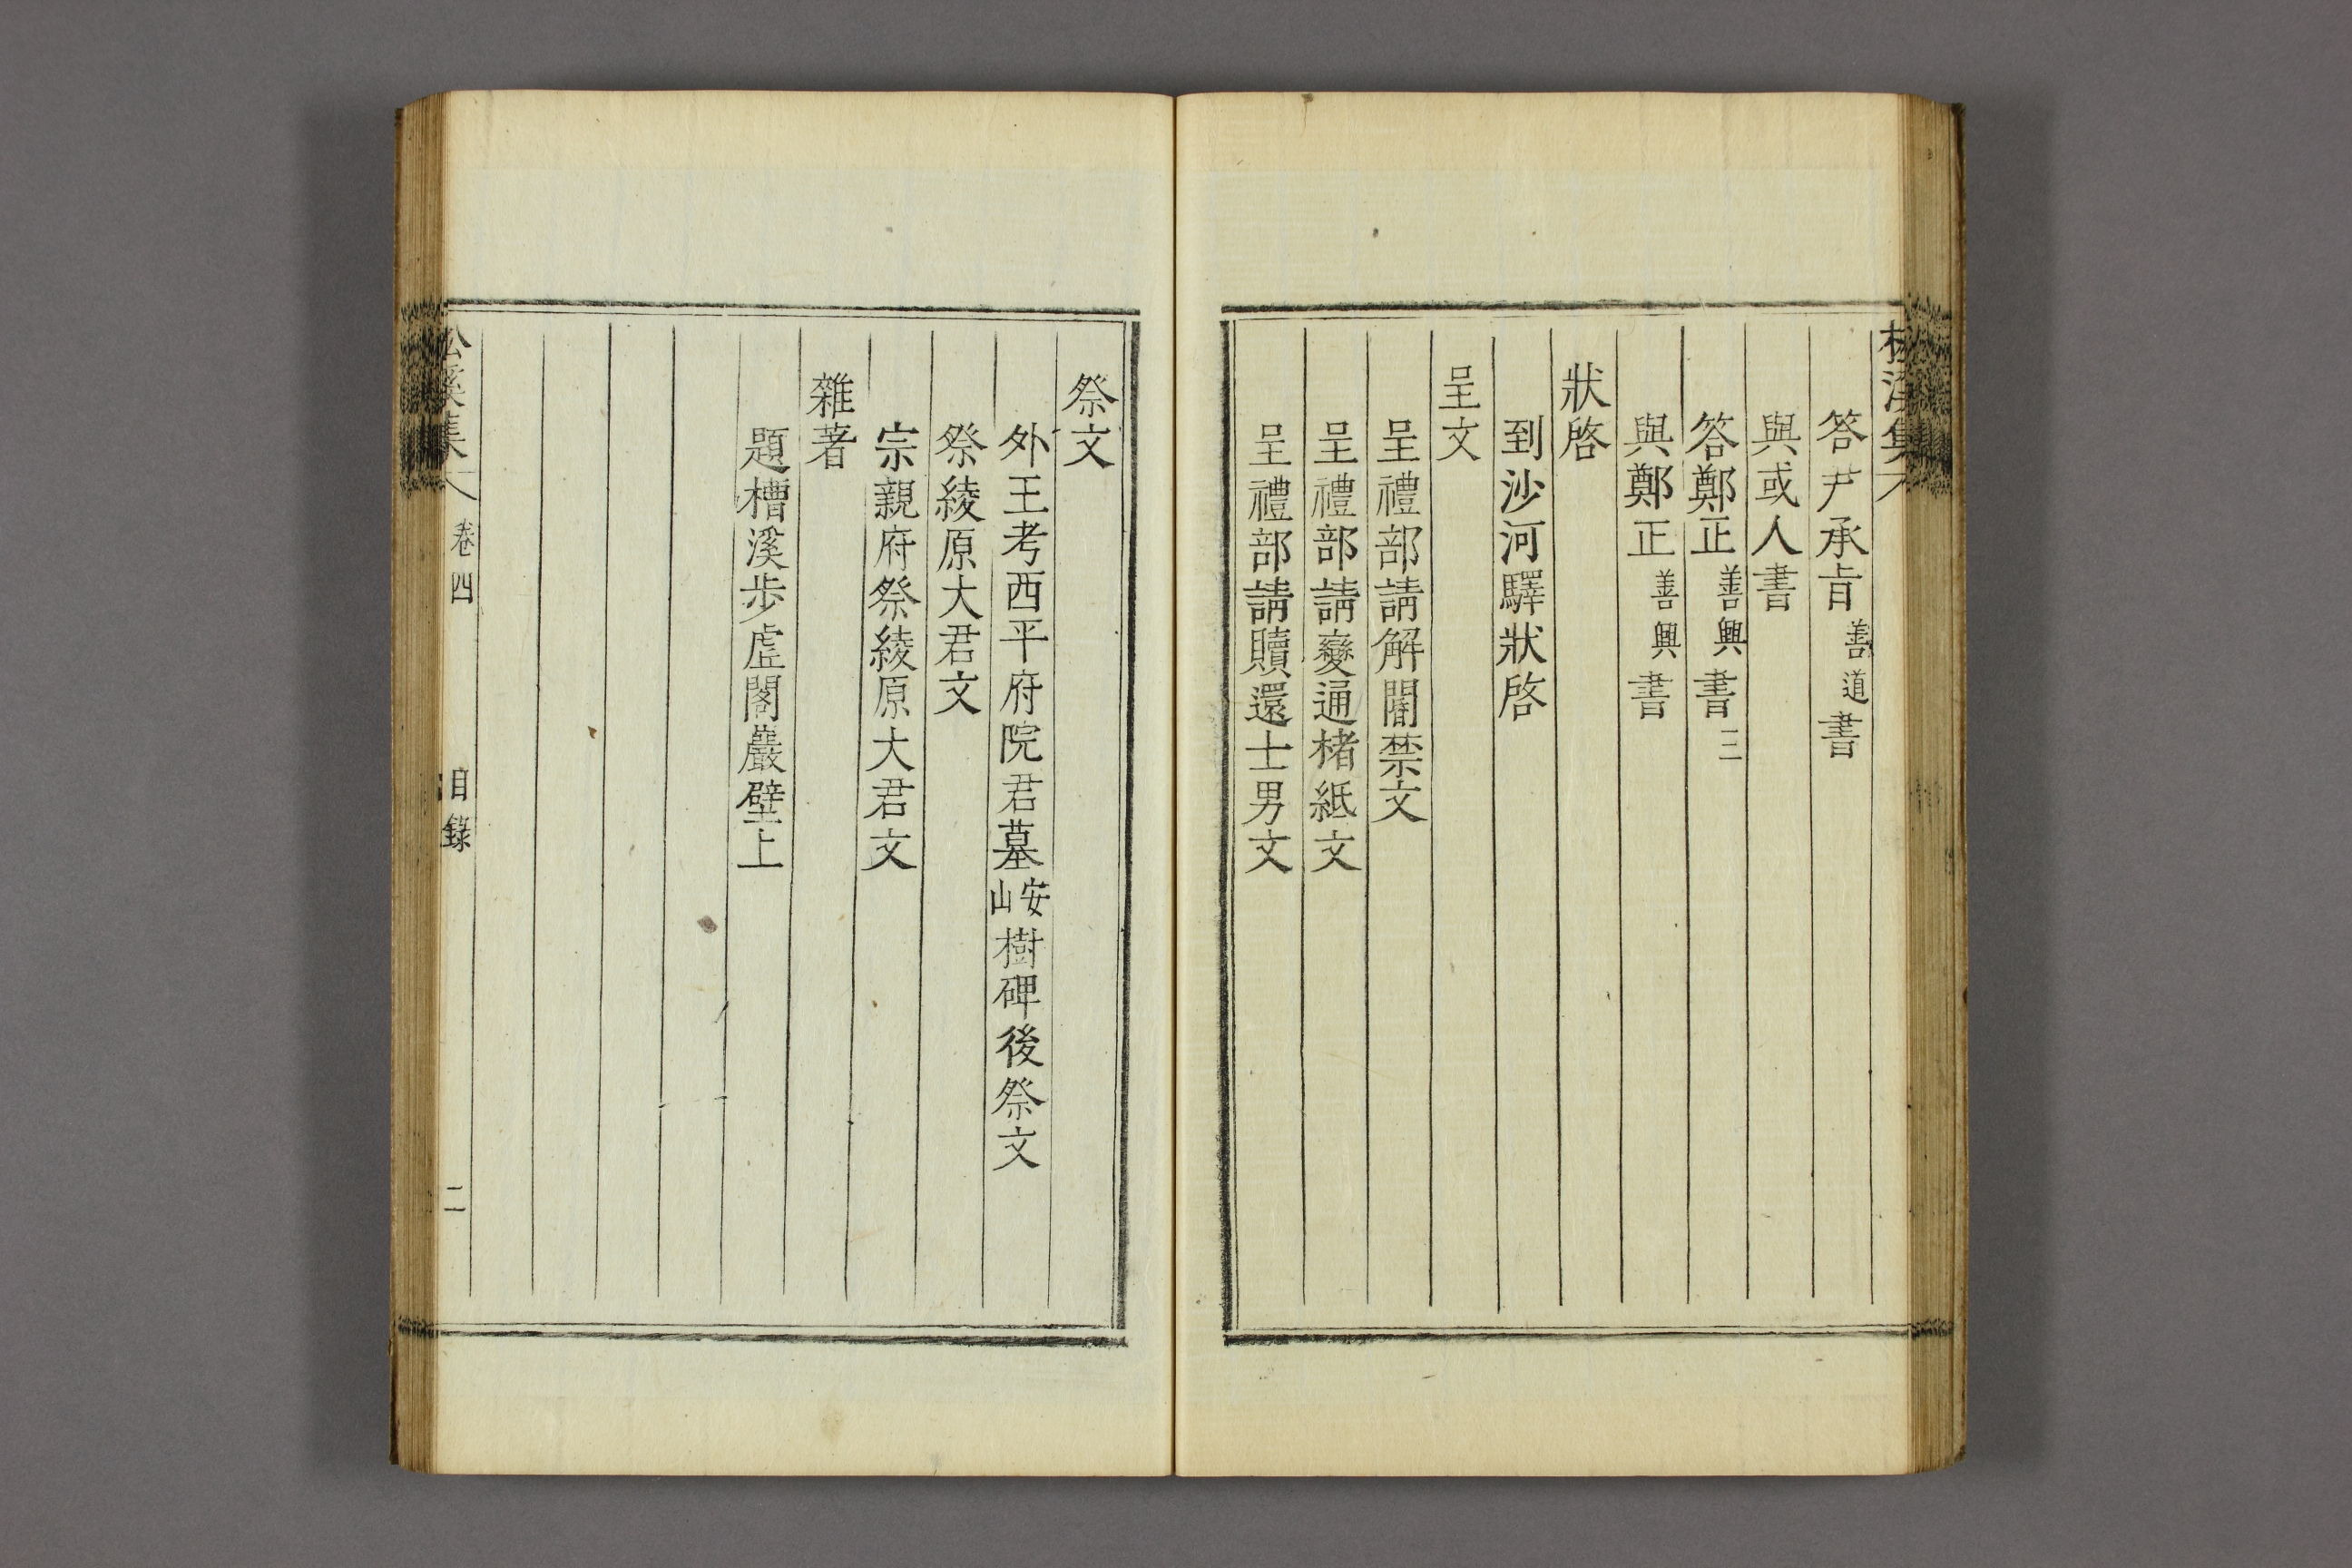 松溪集
答尹承旨善道書
與或人書
答鄭正善興書三
與鄭正善興書
狀啓
到沙河驛狀啓
呈文
呈禮部請解闇禁文
呈禮部請變通楮紙文
呈禮部請贖還士男文
祭文
外王考西平府院君墓安山樹碑後祭文
祭綾原大君文
宗親府祭綾原大君文
雜著
題槽溪步虛閣巖壁上
松溪集
卷四
目錄
二